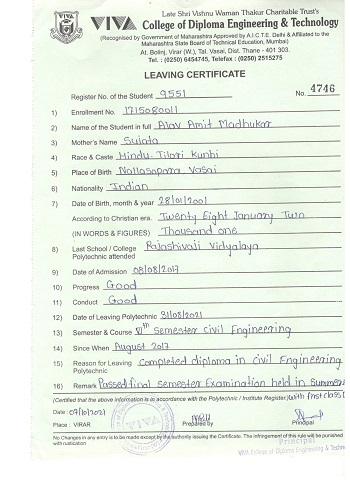 Late Shri Vishnu Waman Thakur Charitable Trust's
VIVA College of Diploma Engineering & Technology
(Recognised by Government of Maharashtra Approved by A.I.C.T.E. Delhi & Affiliated to the
Maharashtra State Board of Technical Education, Mumbai)
At. Bolinj, Virar (W.), Tal. Vasai, Dist. Thane - 401 303.
Tel. : (0250) 6454745, Telefax : (0250) 2515275
LEAVING CERTIFICATE
Register No. of the Student 9551 No. 4746
1) Enrollment No. 1715080011
2) Name of the Student in full Alav Amit Madhukar
3) Mother's Name Sujata
4) Race & Caste Hindu-Tilori Kunbi
5) Place of Birth Nallasopara Vasai
6) Nationality Indian
7) Date of Birth, month & year 28/01/2001
According to Christian era. Twenty Eight January Two
(IN WORDS & FIGURES) Thousand one
8) Last School / College Rajashivaji Vidyalaya
Polytechnic attended
9) Date of Admission 08/08/2017
10) Progress Good
11) Conduct Good
12) Date of Leaving Polytechnic 31/08/2021
13) Semester & Course VIth Semester Civil Engineering
14) Since When August 2017
15) Reason for Leaving Completed diploma in civil Engineering
Polytechnic
16) Remark Passed final semester Examination held in Summer
(Certified that the above information is in accordance with the Polytechnic / Institute Register) with first class
Date : 09/10/2021
Place : VIRAR Prepared by Principal
No Changes in any entry is to be made except by the authority issuing the Certificate. The infringement of this rule will be punished
with rustication
Principal
VIVA College of Diploma Engineering & Techn